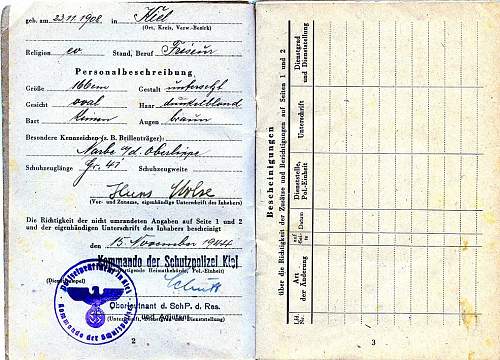 geb. am 23.11.1908 in Kiel
(Ort, Kreis, Verw.-Bezirk)
Religion ev Stand, Beruf Friseur
Personalbeschreibung
Größe 166cm Gestalt untersetzt
Gesicht oval Haar dunkelblond
Bart keinen Augen braun
Besondere Kennzeichen (z. B. Brillenträger):
Narbe a/d. Oberlippe
Schuhzeuglänge Gr. 41 Schuhzeugweite
Hans
(Vor- und Zuname, eigenhändige Unterschrift des Inhabers)
Die Richtigkeit der nicht umrandeten Angaben auf Seite 1 und 2
und der eigenhändigen Unterschrift des Inhabers bescheinigt
den 15. November 1944
Kommando der Schutzpolizei Kiel
(Ausfertigende Heimatbehörde, Pol.-Einheit)
(Dienststempel)
Kommando der Schutzpolizei
Oberleutnant d. SchP. d. Res.
und Adjutant
(Unterschrift, Dienstgrad und Dienststellung)
2
Bescheinigungen
über die Richtigkeit der Zusätze und Berichtigungen auf Seiten 1 und 2
Lfd. Nr.
Art der Änderung
auf Seite
Datum
Dienststelle, Pol.-Einheit
Unterschrift
Dienstgrad und Dienststellung
3